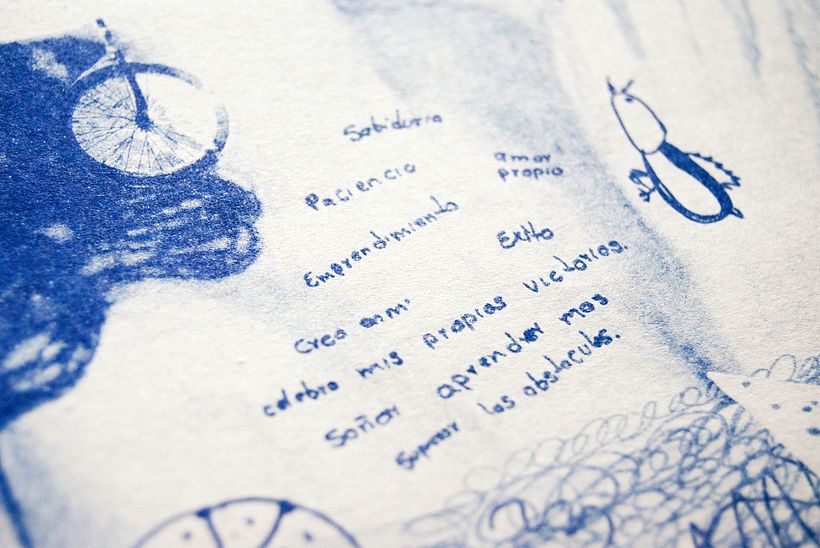 Sabiduria
Paciencia
amor
propio
Emprendimiento
Exito
Creo en mi
celebro mis propias victorias.
Soñar aprender mas
Superar los obstaculos.